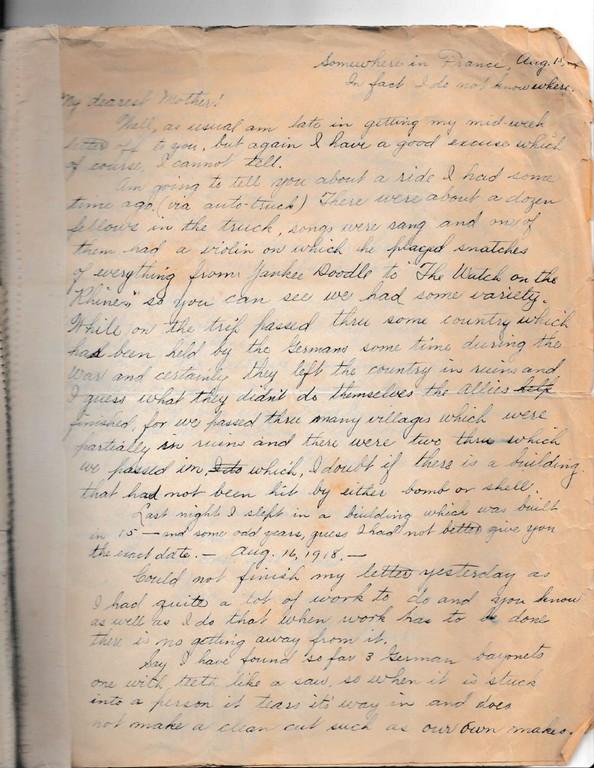 Somewhere in France, Aug. 15, —
In fact I do not know where.
My dearest Mother!
Well, as usual am late in getting my mid-week
letter off to you, but again I have a good excuse which
of course, I cannot tell.
Am going to tell you about a ride I had some
time ago. (via auto-truck) There were about a dozen
fellows in the truck, songs were sang and one of
them had a violin on which he played snatches
of everything from Yankee Doodle to "The Watch on the
Rhine" so you can see we had some variety.
While on the trip passed thru some country which
had been held by the Germans some time during the
war and certainly they left the country in ruins and
I guess what they didn't do themselves the allies help
finished, for we passed thru many villages which were
partially in ruins and there were two thru which
we passed in which, I doubt if there is a building
that had not been hit by either bomb or shell.
Last night I slept in a building which was built
in 15 — and some odd years, guess I had not better give you
the exact date. — Aug. 16, 1918. —
Could not finish my letter yesterday as
I had quite a lot of work to do and you know
as well as I do that when work has to be done
there is no getting away from it.
Say I have found so far 3 German bayonets
one with teeth like a saw, so when it is stuck
into a person it tears it's way in and does
not make a clean cut such as our own makes.